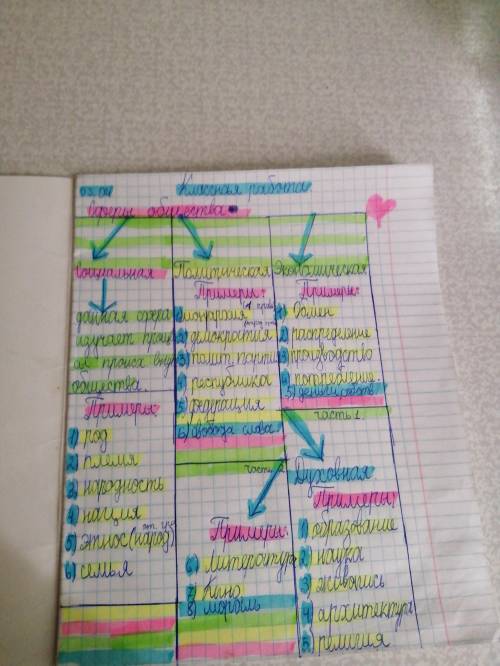 03.09
Классная работа
Сферы общества
Социальная
данная сфера
изучает
общества.
Примеры:
1) род
2) племя
3) народность
4) нация
5) этнос (народ)
6) семья
Политическая
Примеры:
1) монархия
2) демократия
3) полит. партии
4) республика
5) федерация
6) свобода слова
Экономическая
Примеры:
1) обмен
2) распределение
3) производство
4) потребление
5) деньги
часть 1.
часть 2
Духовная
Примеры:
1) образование
2) наука
3) живопись
4) архитектура
5) религия
Примеры:
6) литература
7) Кино
8) мораль